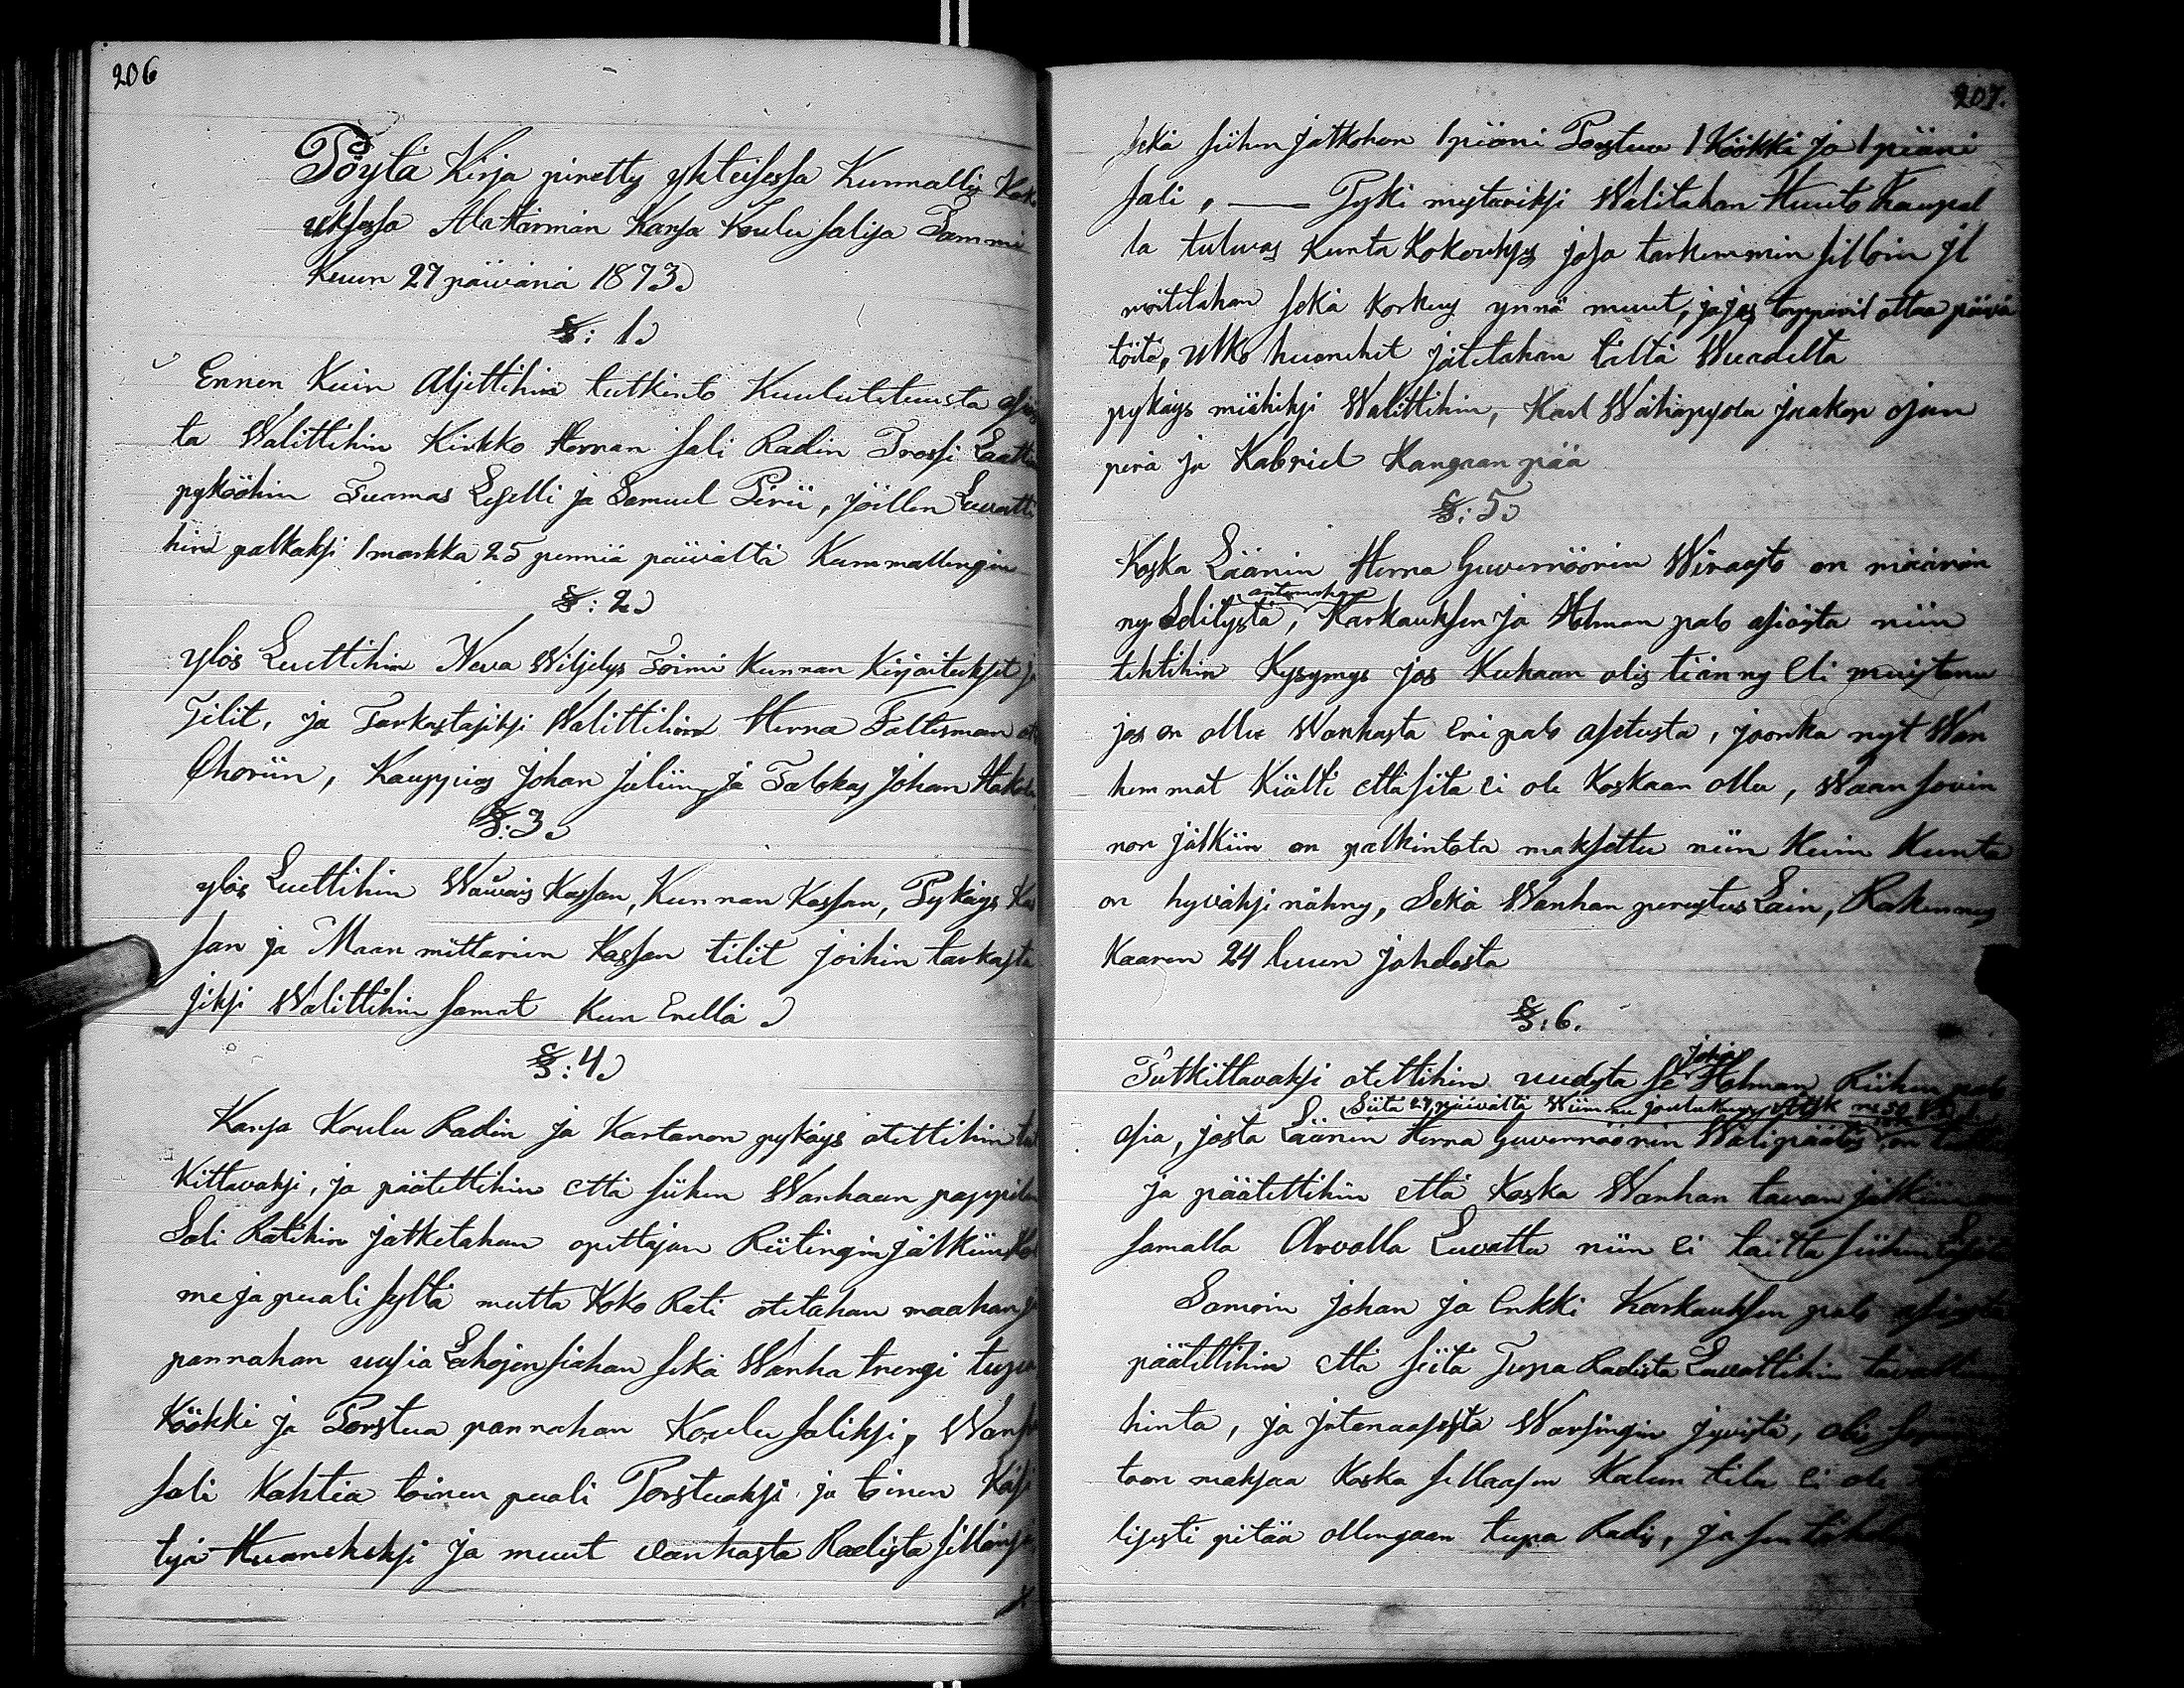 206
Pöytä Kirja piretty yhteisessa Kunnallis Kok
uksessa AlaHärmän Kansa Koulu salisa Tammi
Kuun 27 päivänä 1873
§: 1
Ennen Kuin Aljettihin tutkinto Kuulutetuusta asios
ta Walittihin Kirkko Herran sali Radin Trossi Laatti
pyköőhin Tuomas Leselli ja Samuel Pirii, joillen Luvatti
hin palkaksi 1 markka 25 penniä päivältä Kummallengin
§: 2
ylös Luettihin Neva Wiljelys Toimi Kunnan Kirjoitukset ja
Tilit, ja Tarkastajiksi Walittihin Herra Faltisman
Choriin, Kauppias Johan Juliin ja Talokas Johan Hakola
§: 3
ylös Luettihin Waivais Kassan, Kunnan Kassan, Pykäys Kas
san ja Maan mittariin Kassan tilit joihin tarkasta
jiksi Walittihin samat Kun Enellä
§: 4
Kansa Koulu Radin ja Kartanon pykäys otettihin tut
Kittavaksi, ja päätettihin että siihen Wanhaan pappilan
Sali Ratihin jatketahan opettajan Riitingin jälkiin Kol
me ja puali syltä mutta Koko Rati otetahan maahan ja
pannahan uusia Lahojen siahan sekä Wanha trengi tupa
Köökki ja Porstua pannahan Koulu saliksi, Wanha
sali Kahtia toinen puali Porstuaksi ja toinen Käsi
työ Huaneheksi ja muut vanhasta Radista sillänsä,
207.
sekä siihen jatkohon 1 piäni Porstua 1 Köökki ja 1 piäni
sali, — Pyki mestariksi Walitahan Huuto Kaupal
la tulevas Kunta Kokouksis josa tarkemmin silloin il
moitetahan sekä Korkeus ynnä muut, ja jos torpparit ottaa päivä
töitä, Ulko huanehet jätetähän tältä Wuadelta
pykäys miähiksi Walittihin, Karl Wähäpyssa Jaakop ojan
perä ja Kabriel Kangaan pää
§: 5
Koska Läänin Herra Guvernöörin Wirasto on määrän
ny Selitystä antamahan, Karkauksen ja Holman palo asioista niin
tehtihin Kysymys jos Kukaan olis tiänny Eli muistanu
jos on ollu Wanhasta Eri palo asetusta, joonka nyt Wan
hemmat Kiälti että sitä ei ole Koskaan ollu, Waan sovin
non jälkiin on palkintota maksettu niin Kuin Kunta
on hyväksi nähny, Sekä Wanhan perustus Lain, Rakennus
Kaaren 24 luun johdosta
§: 6.
Tutkittavaksi otettihin uudesta se Johan Holman Riihen palo
asia, josta Läänin Herra Guvernöörin Wälipäätös Siitä 27 päivältä Wiimme joulukuus on tullu
ja päätettihin että Koska Wanhan tavan jälkiin on
samalla Arvolla Luvattu niin ei taitta siihen Lisätä
Samoin Johan ja Erkki Karkauksen palo asiasta
päätettihin että siitä Tupa Radista Luvattihin tavallinen
hinta, ja jätenaasista Warsingin jyvistä, olis
toon maksaa Koska sellaasen Kalun tila ei ole
lisesti pitää ollengaan tupa Radis, ja sen tähden